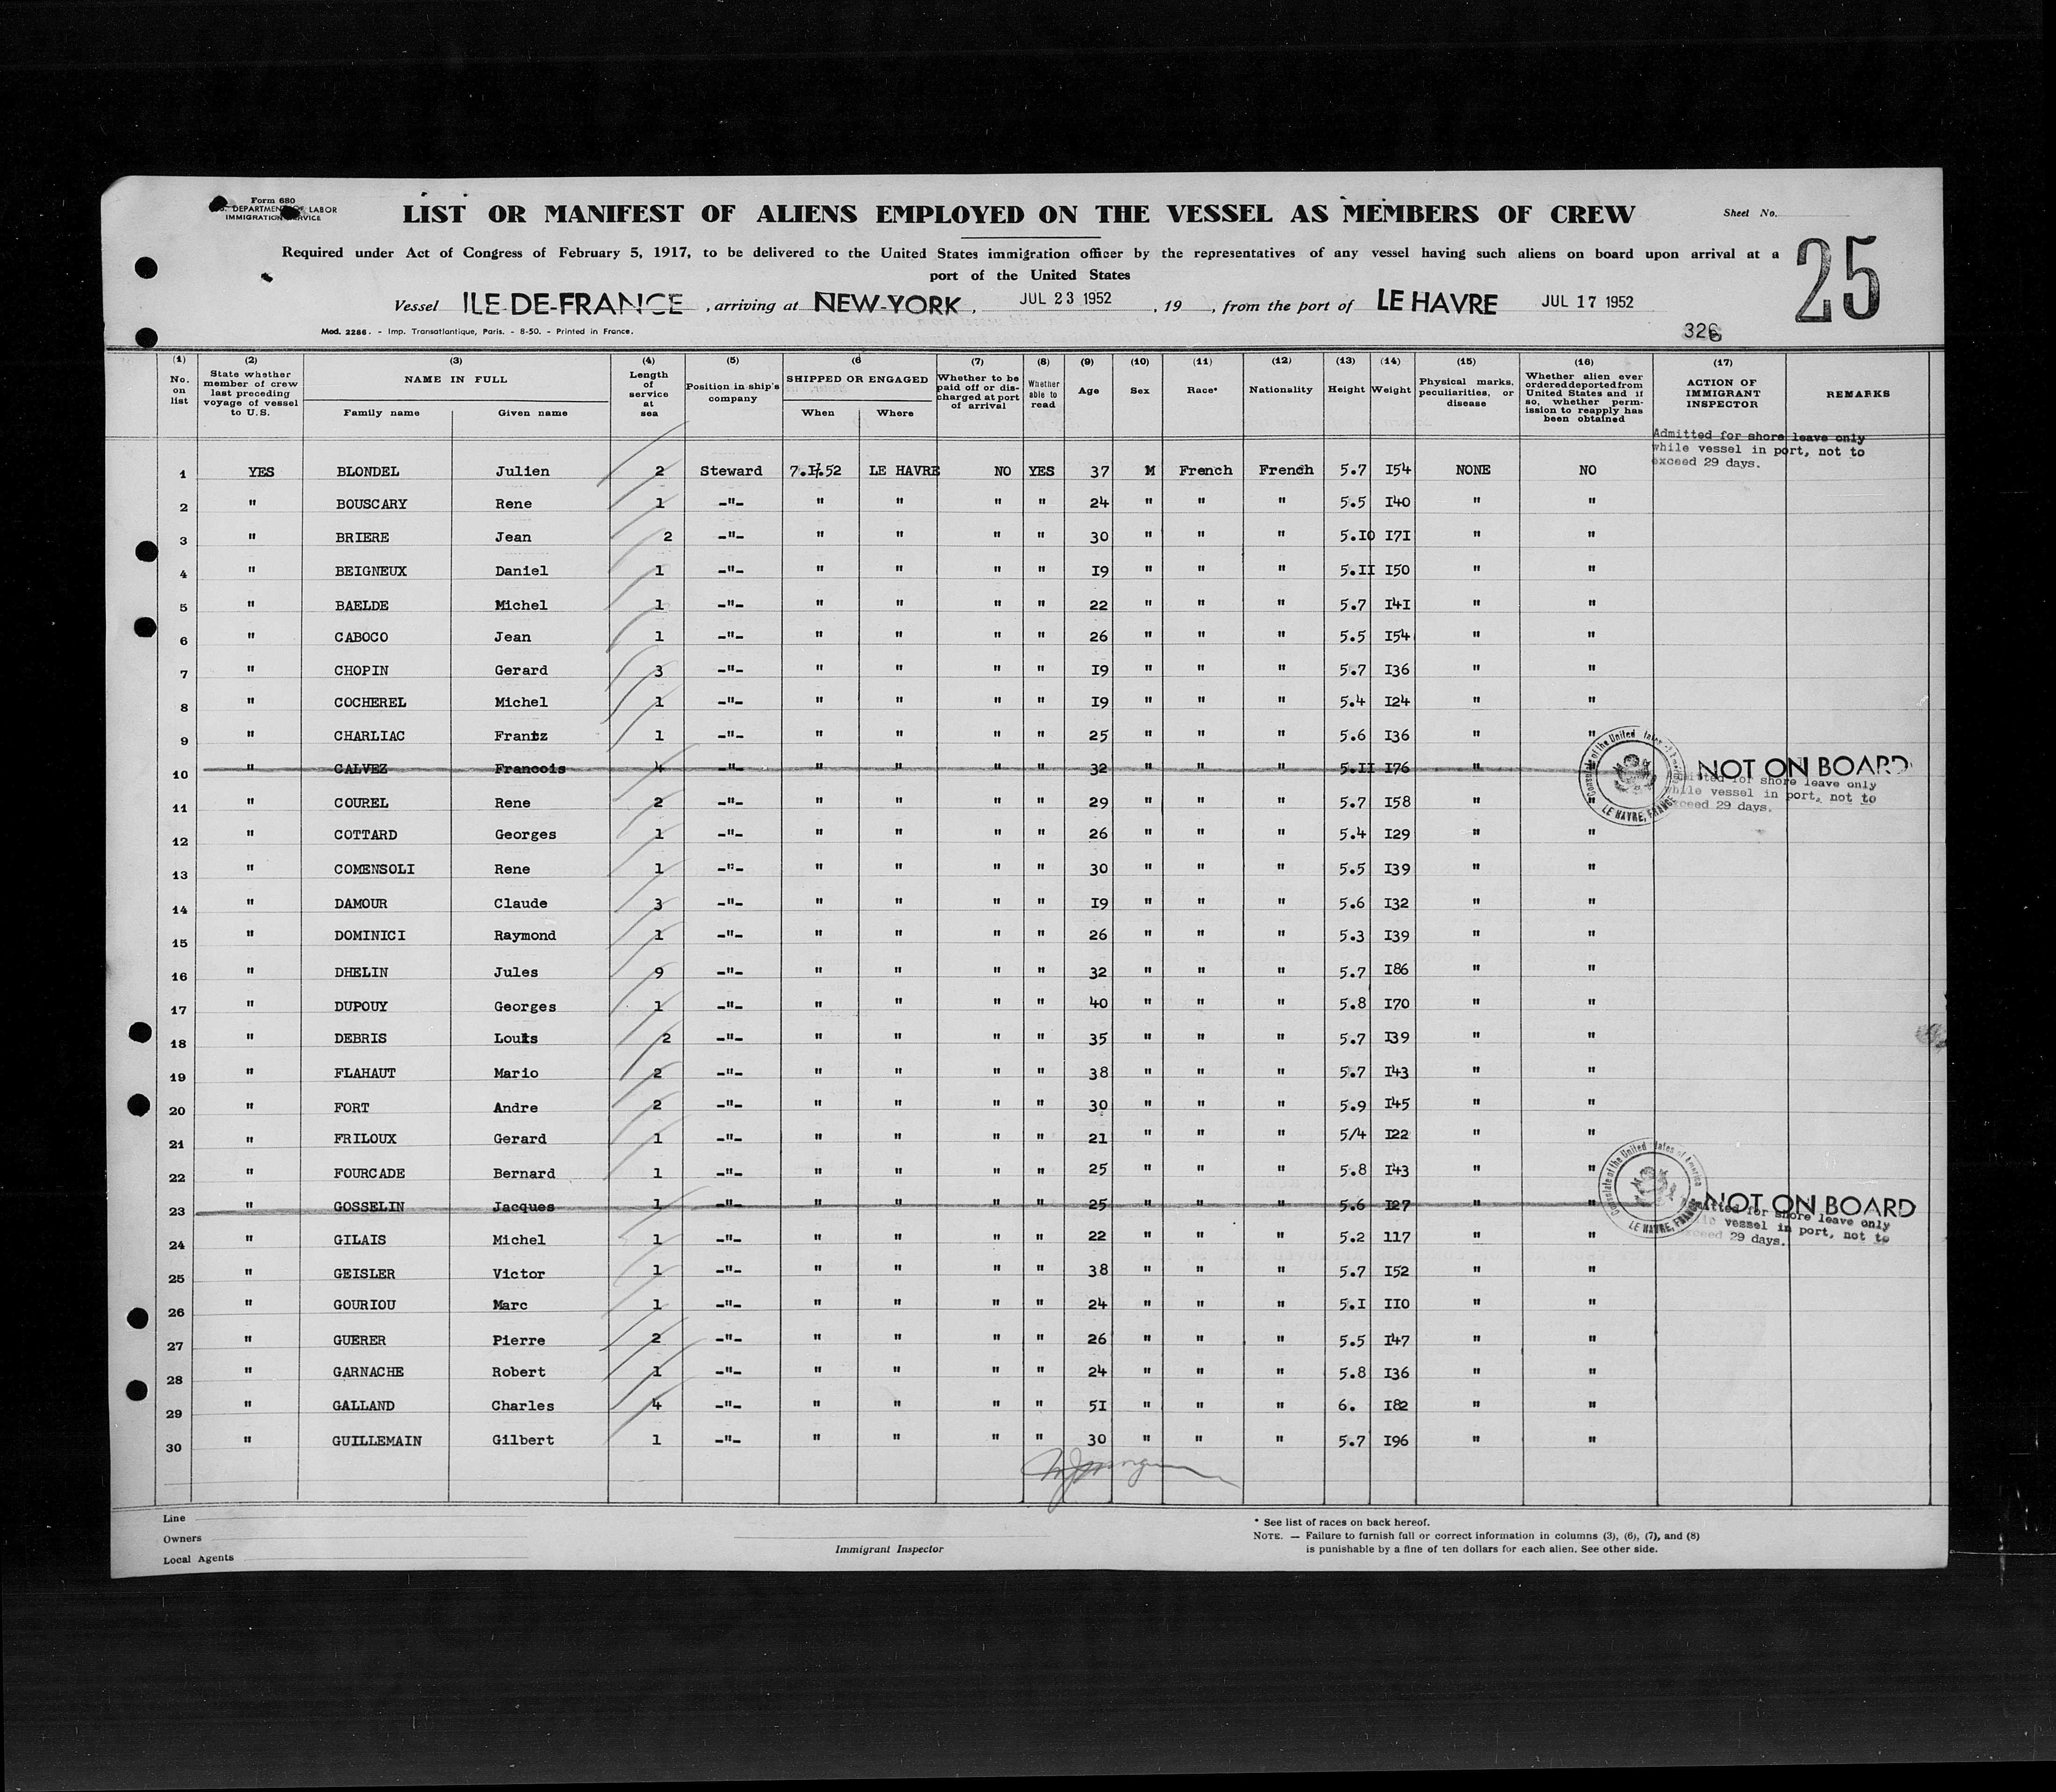 Form 680
U.S. DEPARTMENT OF LABOR
IMMIGRATION SERVICE
LIST OR MANIFEST OF ALIENS EMPLOYED ON THE VESSEL AS MEMBERS OF CREW
Sheet No.
25
Required under Act of Congress of February 5, 1917, to be delivered to the United States immigration officer by the representatives of any vessel having such aliens on board upon arrival at a
port of the United States
Vessel ILE-DE-FRANCE, arriving at NEW-YORK, JUL 23 1952, 19 , from the port of LE HAVRE JUL 17 1952
Mod. 2286. - Imp. Transatlantique, Paris. - 8-50. - Printed in France.
326
(1) (2) (3) (4) (5) (6 (7) (8) (9) (10) (11) (12) (13) (14) (15) (16) (17)
No. on list
State whether member of crew last preceding voyage of vessel to U.S.
NAME IN FULL
Family name
Given name
Length of service at sea
Position in ship's company
SHIPPED OR ENGAGED
When
Where
Whether to be paid off or discharged at port of arrival
Whether able to read
Age
Sex
Race*
Nationality
Height
Weight
Physical marks, peculiarities, or disease
Whether alien ever ordered deported from United States and if so, whether permission to reapply has been obtained
ACTION OF IMMIGRANT INSPECTOR
REMARKS
Admitted for shore leave only
while vessel in port, not to
exceed 29 days.
1 YES BLONDEL Julien 2 Steward 7.I.52 LE HAVRE NO YES 37 M French French 5.7 I54 NONE NO
2 " BOUSCARY Rene 1 -"- " " " " 24 " " " 5.5 I40 " "
3 " BRIERE Jean 2 -"- " " " " 30 " " " 5.I0 I7I " "
4 " BEIGNEUX Daniel 1 -"- " " " " I9 " " " 5.II I50 " "
5 " BAELDE Michel 1 -"- " " " " 22 " " " 5.7 I4I " "
6 " CABOCO Jean 1 -"- " " " " 26 " " " 5.5 I54 " "
7 " CHOPIN Gerard 3 -"- " " " " I9 " " " 5.7 I36 " "
8 " COCHEREL Michel 1 -"- " " " " I9 " " " 5.4 I24 " "
9 " CHARLIAC Frantz 1 -"- " " " " 25 " " " 5.6 I36 " "
10 " CALVEZ Francois 4 -"- " " " " 32 " " " 5.II I76 " NOT ON BOARD
Admitted for shore leave only
while vessel in port, not to
exceed 29 days.
Consulate of the United States of America
LE HAVRE, FRANCE
11 " COUREL Rene 2 -"- " " " " 29 " " " 5.7 I58 " "
12 " COTTARD Georges 1 -"- " " " " 26 " " " 5.4 I29 " "
13 " COMENSOLI Rene 1 -"- " " " " 30 " " " 5.5 I39 " "
14 " DAMOUR Claude 3 -"- " " " " I9 " " " 5.6 I32 " "
15 " DOMINICI Raymond 1 -"- " " " " 26 " " " 5.3 I39 " "
16 " DHELIN Jules 9 -"- " " " " 32 " " " 5.7 I86 " "
17 " DUPOUY Georges 1 -"- " " " " 40 " " " 5.8 I70 " "
18 " DEBRIS Louis 2 -"- " " " " 35 " " " 5.7 I39 " "
19 " FLAHAUT Mario 2 -"- " " " " 38 " " " 5.7 I43 " "
20 " FORT Andre 2 -"- " " " " 30 " " " 5.9 I45 " "
21 " FRILOUX Gerard 1 -"- " " " " 21 " " " 5/4 I22 " "
22 " FOURCADE Bernard 1 -"- " " " " 25 " " " 5.8 I43 " "
23 " GOSSELIN Jacques 1 -"- " " " " 25 " " " 5.6 I27 " " NOT ON BOARD
Admitted for shore leave only
vessel in port, not to
exceed 29 days.
Consulate of the United States of America
LE HAVRE, FRANCE
24 " GILAIS Michel 1 -"- " " " " 22 " " " 5.2 117 " "
25 " GEISLER Victor 1 -"- " " " " 38 " " " 5.7 I52 " "
26 " GOURIOU Marc 1 -"- " " " " 24 " " " 5.I II0 " "
27 " GUERER Pierre 2 -"- " " " " 26 " " " 5.5 I47 " "
28 " GARNACHE Robert 1 -"- " " " " 24 " " " 5.8 I36 " "
29 " GALLAND Charles 4 -"- " " " " 5I " " " 6. I82 " "
30 " GUILLEMAIN Gilbert 1 -"- " " " " 30 " " " 5.7 I96 " "
Line
Owners
Local Agents
Immigrant Inspector
* See list of races on back hereof.
NOTE. — Failure to furnish full or correct information in columns (3), (6), (7), and (8)
is punishable by a fine of ten dollars for each alien. See other side.